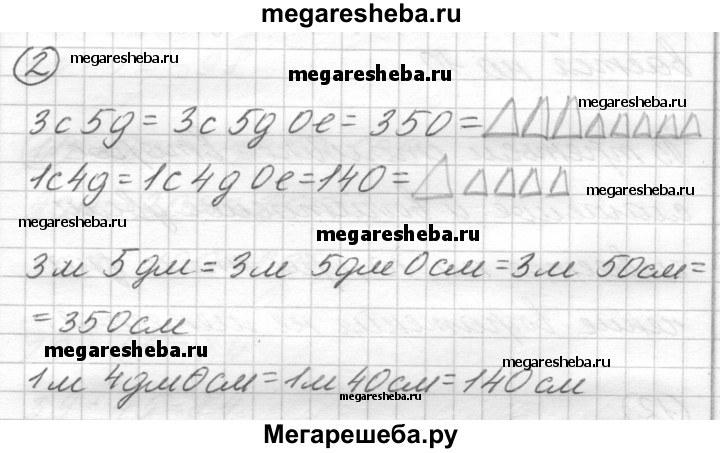 megaresheba.ru
2 megaresheba.ru
megaresheba.ru
megaresheba.ru
3с 5д = 3с 5д 0е = 350 =
1с4д = 1с 4д 0е = 140 =
megaresheba.ru
megaresheba.ru
megaresheba.ru
3м 5дм = 3м 5дм 0см = 3м 50см =
= 350см
megaresheba.ru
megaresheba.ru
1м 4дм 0см = 1м 40см = 140см
megaresheba.ru
Мегарешеба.ру